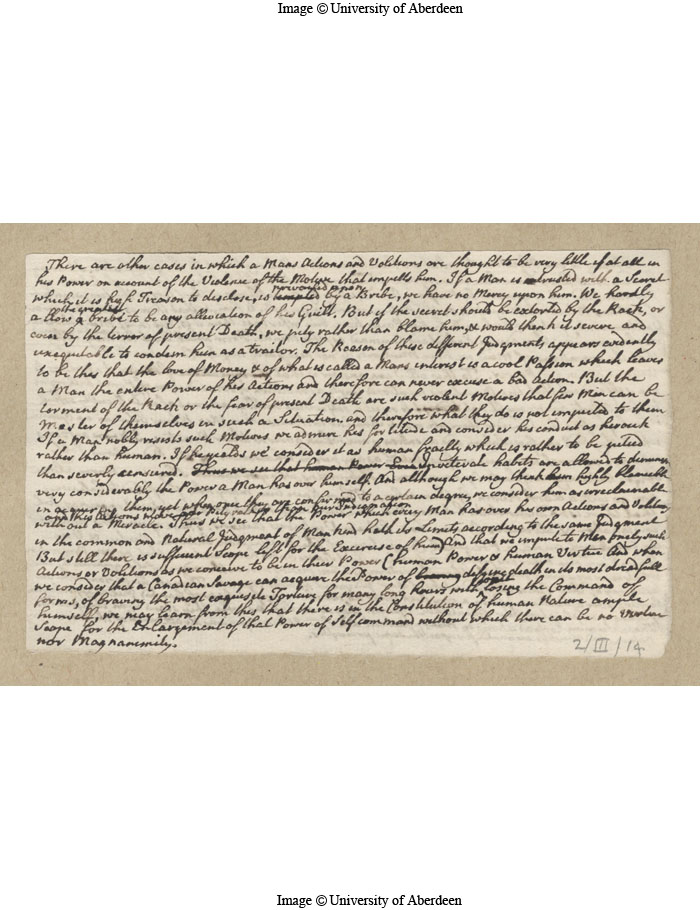 Image © University of Aberdeen
There are other cases in which a Mans Actions and Volitions are thought to be very little if at all in
his Power on account of the Violence of the Motive that impells him. If a Man is intrusted with a Secret
prevailed upon
which it is high Treason to disclose, is tempted by a Bribe, we have no Mercy upon him. We hardly
the greatest
allow a bribe to be any alleviation of his Guilt. But if the secret should be extorted by the Rack, or
even by the terror of present Death, we pity rather than blame him, & would think it severe and
unequitable to condemn him as a traitor. The Reason of these different Judgments appears evidently
to be this that the love of Money & of what is called a Mans interest is a cool Passion which leaves
a Man the entire Power of his Actions and therefore can never excuse a bad Action. But the
torment of the Rack or the fear of present Death are such violent Motives that few Men can be
Master of themselves in such a Situation and therefore what they do is not imputed to them
If a Man nobly resists such Motives we admire his fortitude and consider his conduct as heroick
rather than human. If he yields we consider it as human frailty which is rather to be pitied
than severly censured. Thus we see that human Power Even Inveterate habits are allowed to diminish
very considerably the Power a Man has over himself. And although we may think him highly blameable
in acquiring them, yet when once they are confirmed to a certain degree, we consider him as irreclaimable
and his actions move our Pity rather than our Indignation
without a Miracle. Thus we see that the Power which every Man has over his own Actions and Volitions,
in the common and Natural Judgment of Mankind hath its Limits according to the same Judgment
But still there is sufficient Scope left for the Excercise of human And that we impute to Men onely such
Actions or Volitions as we conceive to be in their Power (human Power & human Virtue And when
we consider that a Canadian Savage can acquire the Power of defying death in its most dreadfull
forms, of braving the most exquisite Torture for many long hours without losing the Command of
himself, we may learn from this that there is in the Constitution of human Nature ample
Scope for the Enlargement of that Power of Self command without which there can be no Virtue
nor Magnanimity.
2/III/14
Image © University of Aberdeen